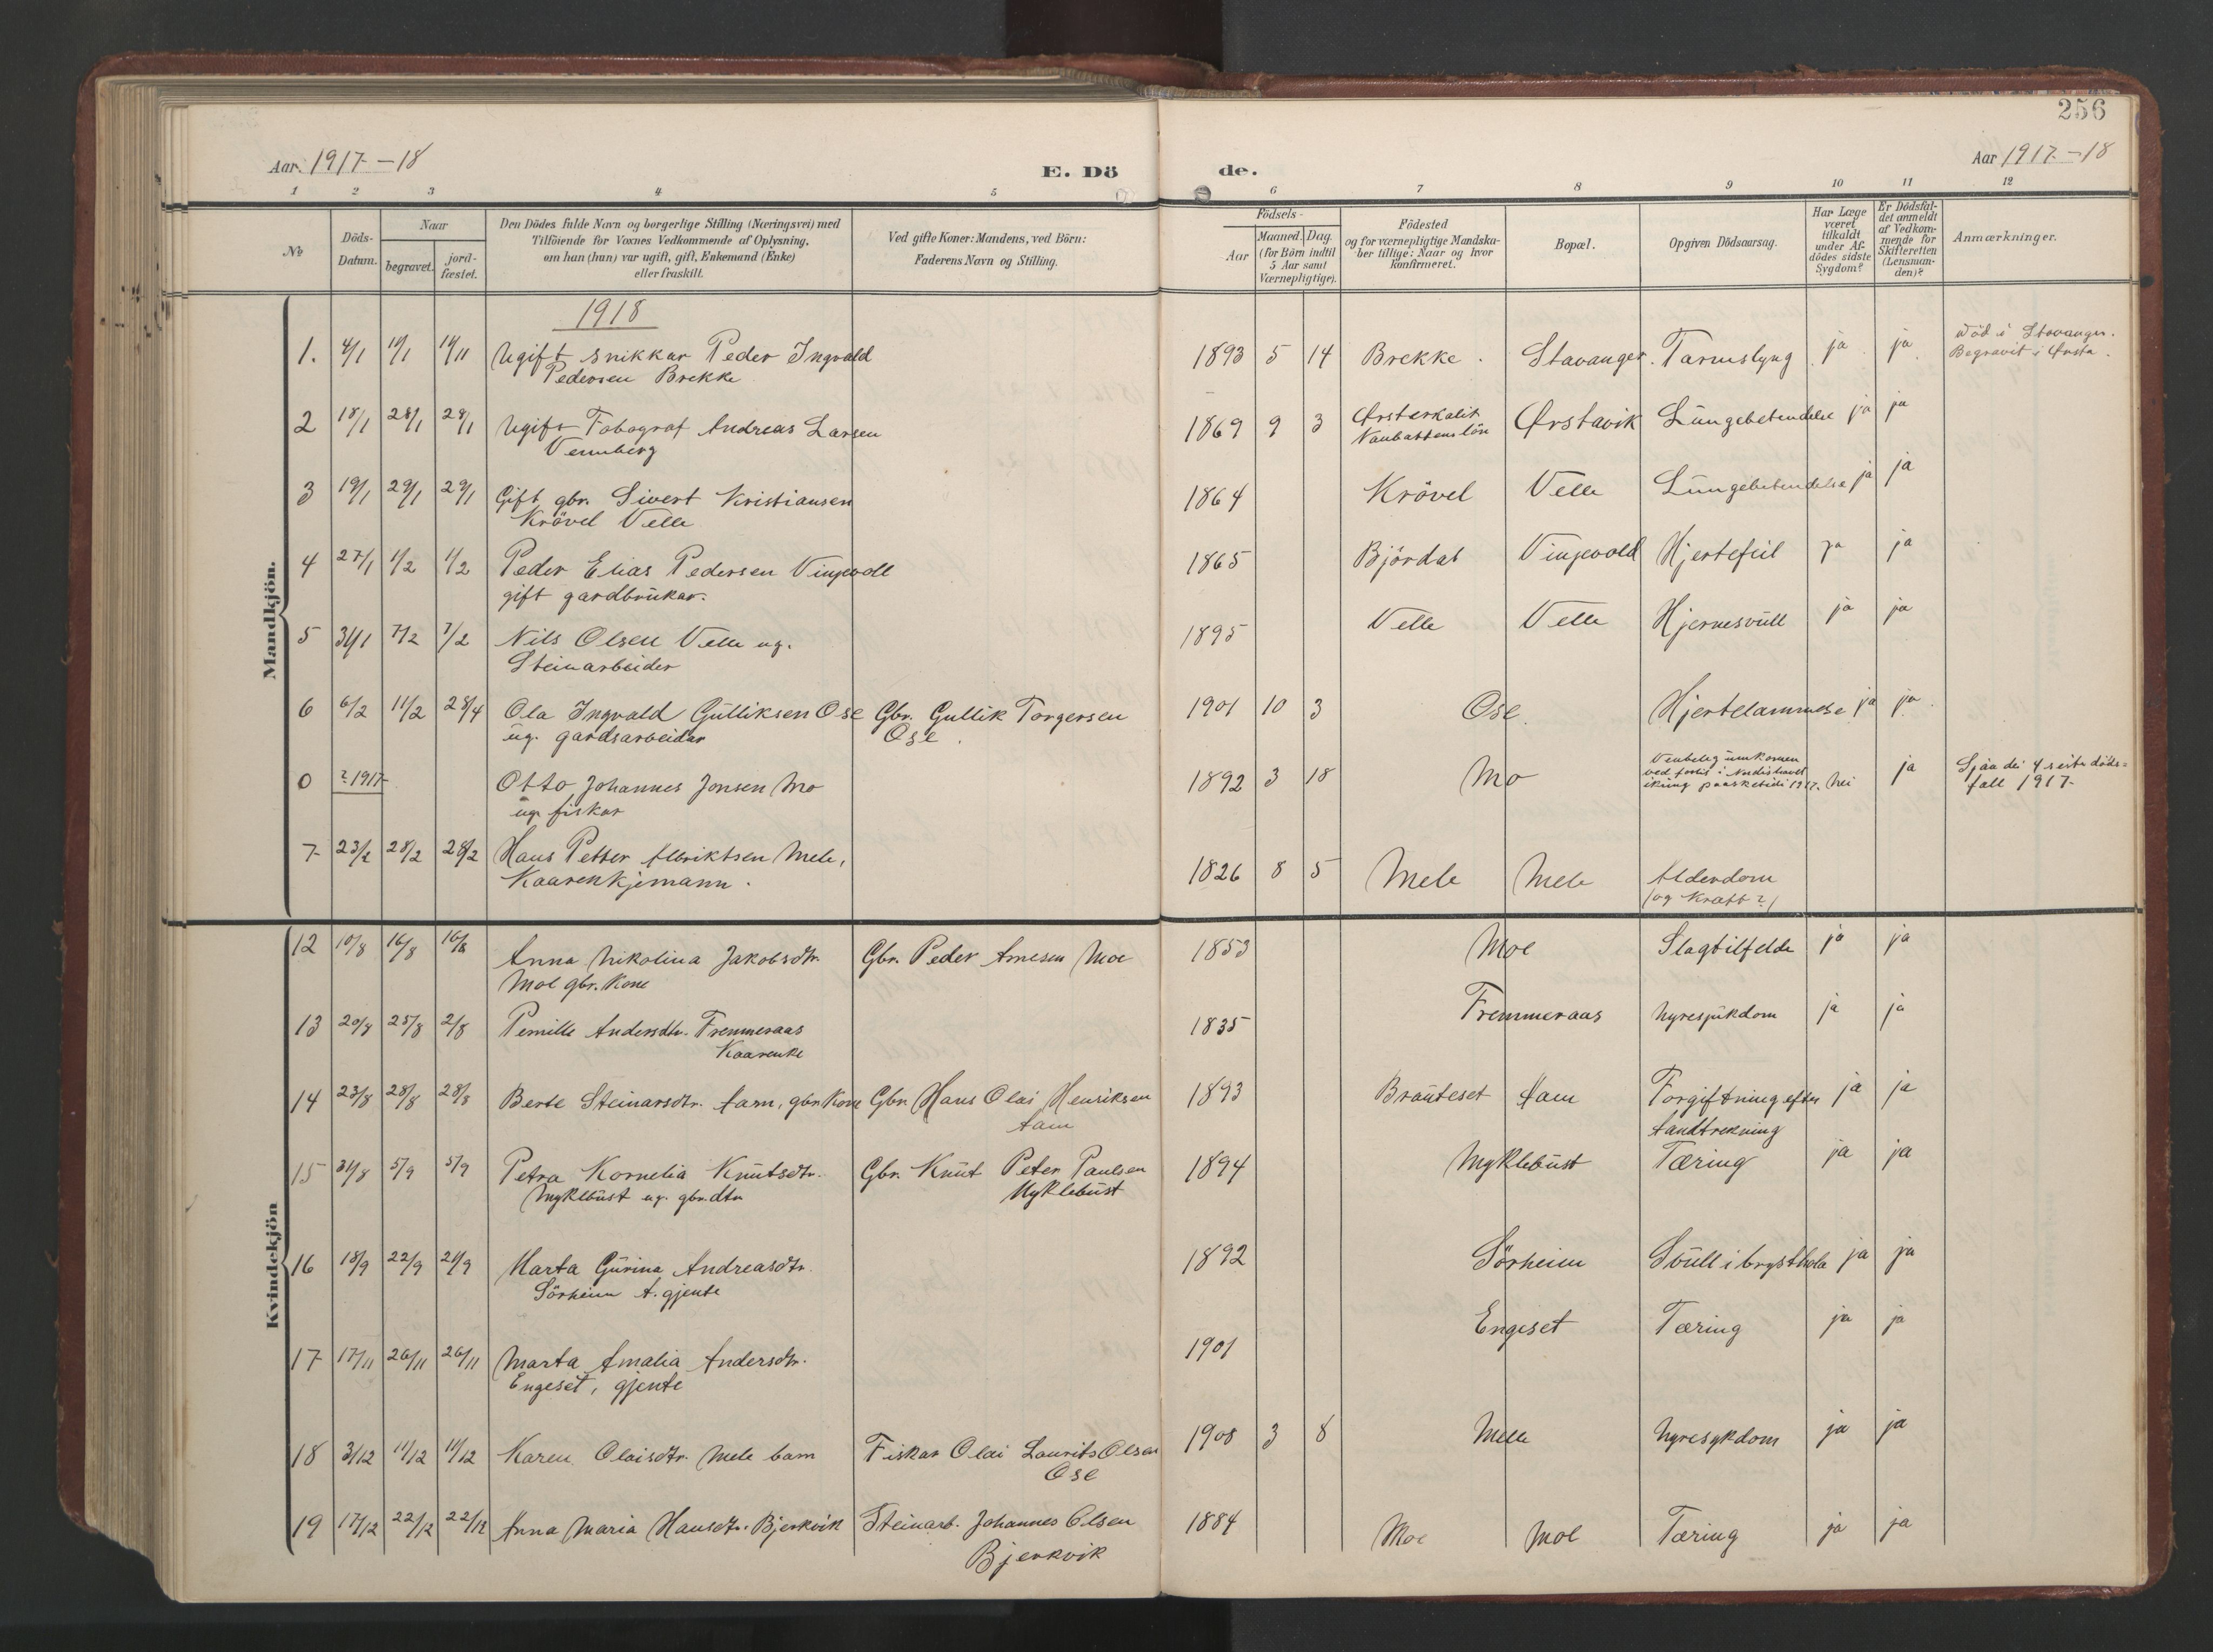 256
Aar 1917-18
E. Dö
de.
Aar 1917-18
1 2 3 4 5 6 7 8 9 10 11 12
No
Döds-
Datum.
Naar
begravet.
jord-
fæstet.
Den Dödes fulde Navn og borgerlige Stilling (Næringsvei) med
Tilföiende for Voxnes Vedkommende af Oplysning,
om han (hun) var ugift, gift, Enkemand (Enke)
eller fraskilt.
Ved gifte Koner: Mandens, ved Börn:
Faderens Navn og Stilling.
Födsels-
Aar
Maaned. Dag.
(for Börn indtil
5 Aar samt
Værnepligtige).
Födested
og for værnepligtige Mandska-
ber tillige: Naar og hvor
konfirmeret.
Bopæl.
Opgiven Dödsaarsag.
Har Læge
været
tilkaldt
under Af-
dödes sidste
Sygdom?
Er Dödsfal-
det anmeldt
af Vedkom-
mende for
Skifteretten
(Lensman-
den)?
Anmærkninger.
Mandkjön.
1918
1. 4/1 19/1 19/11 Ugift snikkar Peder Ingvald 1893 5 14 Brekke. Stavanger. Tarmslyng ja ja Död i Stavanger.
Pedersen Brekke Begravet i Örsta.
2 18/1 28/1 28/1 Ugift Fotograf Andreas Larsen 1869 9 3 Örstavik Lungebetendelse ja ja
Vennberg
3 19/1 29/1 29/1 Gift gbr. Sivert Kristiansen 1864 Krövel Velle Lungebetendelse ja ja
Krövel Velle
4 27/1 1/2 1/2 Peder Elias Pedersen Vinjevoll 1865 Björdal Vinjevold Hjertefeil ja ja
gift gardbrukar.
5 31/1 7/2 7/2 Nils Olsen Velle ug. 1895 Velle Velle Hjernesvull ja ja
Steinarbeider
6 6/2 11/2 28/4 Ola Ingvald Gulliksen Ose Gbr. Gullik Torgersen 1901 10 3 Ose Hjertelammelse ja ja
ug. gardsarbeidar Ose.
0 ? 1917 Otto Johannes Jonsen Mo 1892 3 18 Mo Venteleg umkomen
ved forlis i Nordishavet
paasketidi 1917. nei ja Sjaa dei 4 siste döds=
fall 1917
ug. fiskar
7 23/2 28/2 28/2 Hans Petter Albriktsen Mele, 1826 8 5 Mele Mele Alderdom
Kaarenkjemann. (og Kræft?)
Kvindekjön
12 10/8 16/8 16/8 Anna Nikolina Jakobsdtr. Gbr. Peder Arnesen Moe 1853 Moe Slagtilfelde ja ja
Moe gbr. kone
13 20/8 25/8 2/8 Pernille Andersdtr. Fremmeraas 1835 Fremmeraas Nyresjukdom ja ja
Kaarenke
14 23/8 28/8 28/8 Berte Steinarsdtr. Aam, gbr. kone Gbr. Hans Olai Henriksen 1893 Brauteset Aam Forgiftning efter ja ja
Aam tandtrekning
15 31/8 5/9 5/9 Petra Kornelia Knutsdtr. Gbr. Knut Peter Paulsen 1894 Myklebust Tæring ja ja
Myklebust ug. gbr.dtr Myklebust
16 18/9 22/9 21/9 Marta Gurina Andreasdtr. 1892 Sörheim Svull i brysthola ja ja
Sörheim t. gjente
17 17/11 26/11 26/11 Marta Amalia Andersdtr. 1901 Engeset Tæring ja ja
Engeset, gjente
18 3/12 11/12 11/12 Karen Olaisdtr. Mele barn Fiskar Olai Laurits Olsen 1908 3 8 Melle Nyresykdom ja ja
Ose
19 17/12 22/12 22/12 Anna Maria Hansdtr. Bjerkvik Steinarb. Johannes Olsen 1884 Moe Moe Tæring ja ja
Bjerkvik